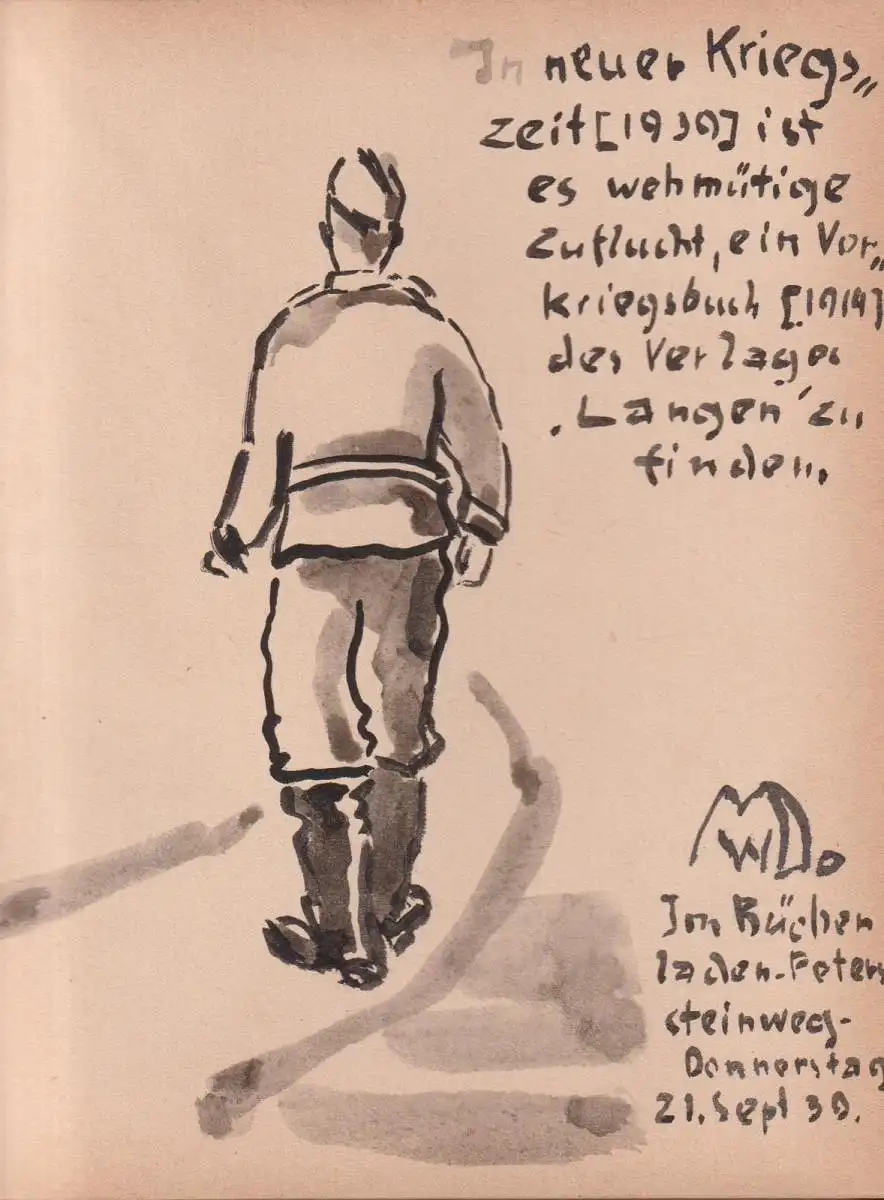 In neuer Kriegs„
zeit [1939] ist
es wehmütige
Zuflucht, ein Vor„
kriegsbuch [1914]
des Verlages
‚Langen‘ zu
finden.
MWDo
Im Bücher
laden-Peters
steinweg-
Donnerstag
21. Sept 39.